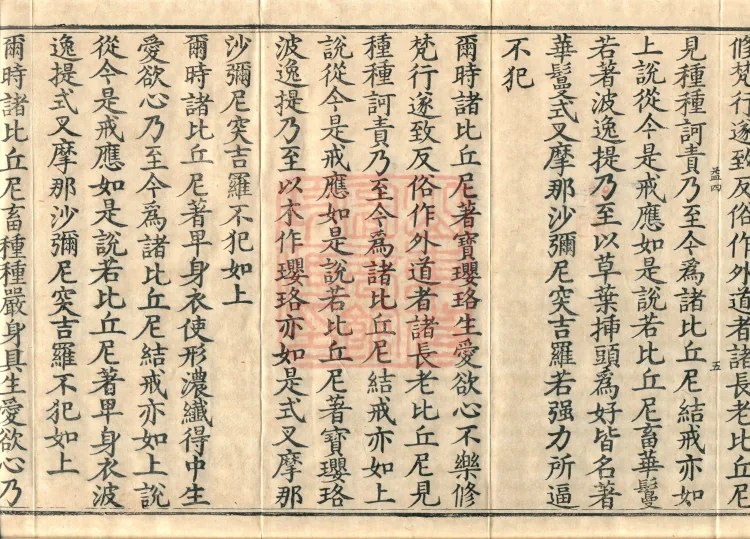 脩梵行遂致反俗作外道者諸長老比丘尼
見種種訶責乃至今為諸比丘尼結戒亦如
上說從今是戒應如是說若比丘尼畜華鬘
若著波逸提乃至以草葉揷頭為好皆名著
華鬘式叉摩那沙彌尼突吉羅若强力所逼
不犯
爾時諸比丘尼著寶瓔珞生愛欲心不樂修
梵行遂致反俗作外道者諸長老比丘尼見
種種訶責乃至今為諸比丘尼結戒亦如上
說從今是戒應如是說若比丘尼著寶瓔珞
波逸提乃至以木作瓔珞亦如是式叉摩那
沙彌尼突吉羅不犯如上
爾時諸比丘尼著㽞身衣使形濃纖得中生
愛欲心乃至今為諸比丘尼結戒亦如上說
從今是戒應如是說若比丘尼著㽞身衣波
逸提式叉摩那沙彌尼突吉羅不犯如上
爾時諸比丘尼畜種種嚴身具生愛欲心乃
益四
五